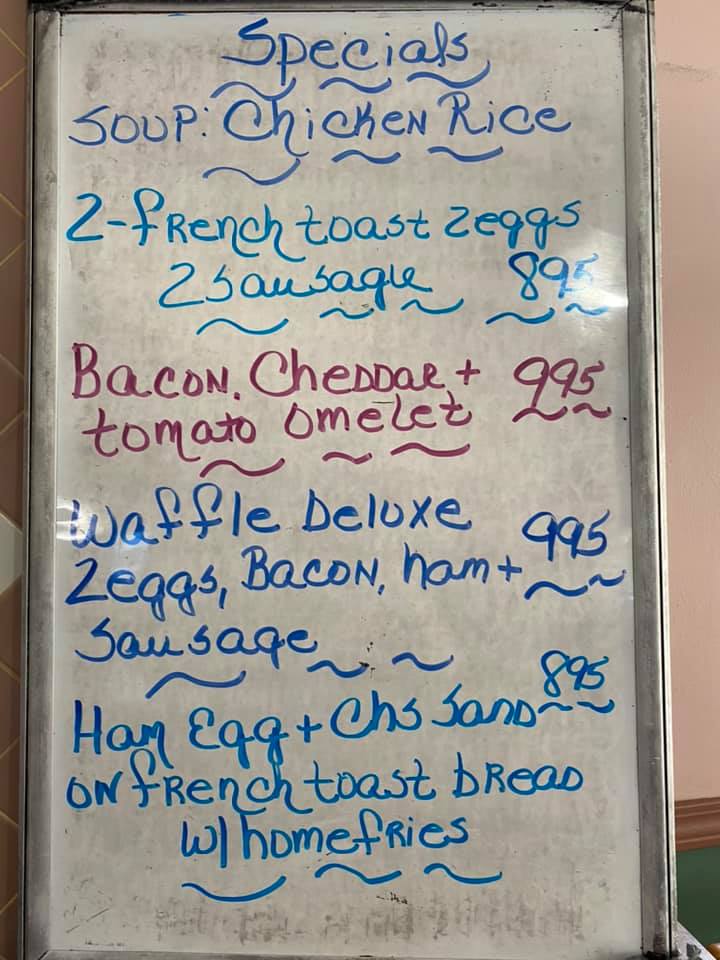 Specials
Soup: Chicken Rice
2-french toast 2eggs
2 sausage 895
Bacon, Cheddar + 995
tomato omelet
Waffle Deluxe 995
2eggs, Bacon, ham +
Sausage
Ham Egg + Chs Sand 895
on french toast bread
w/ homefries